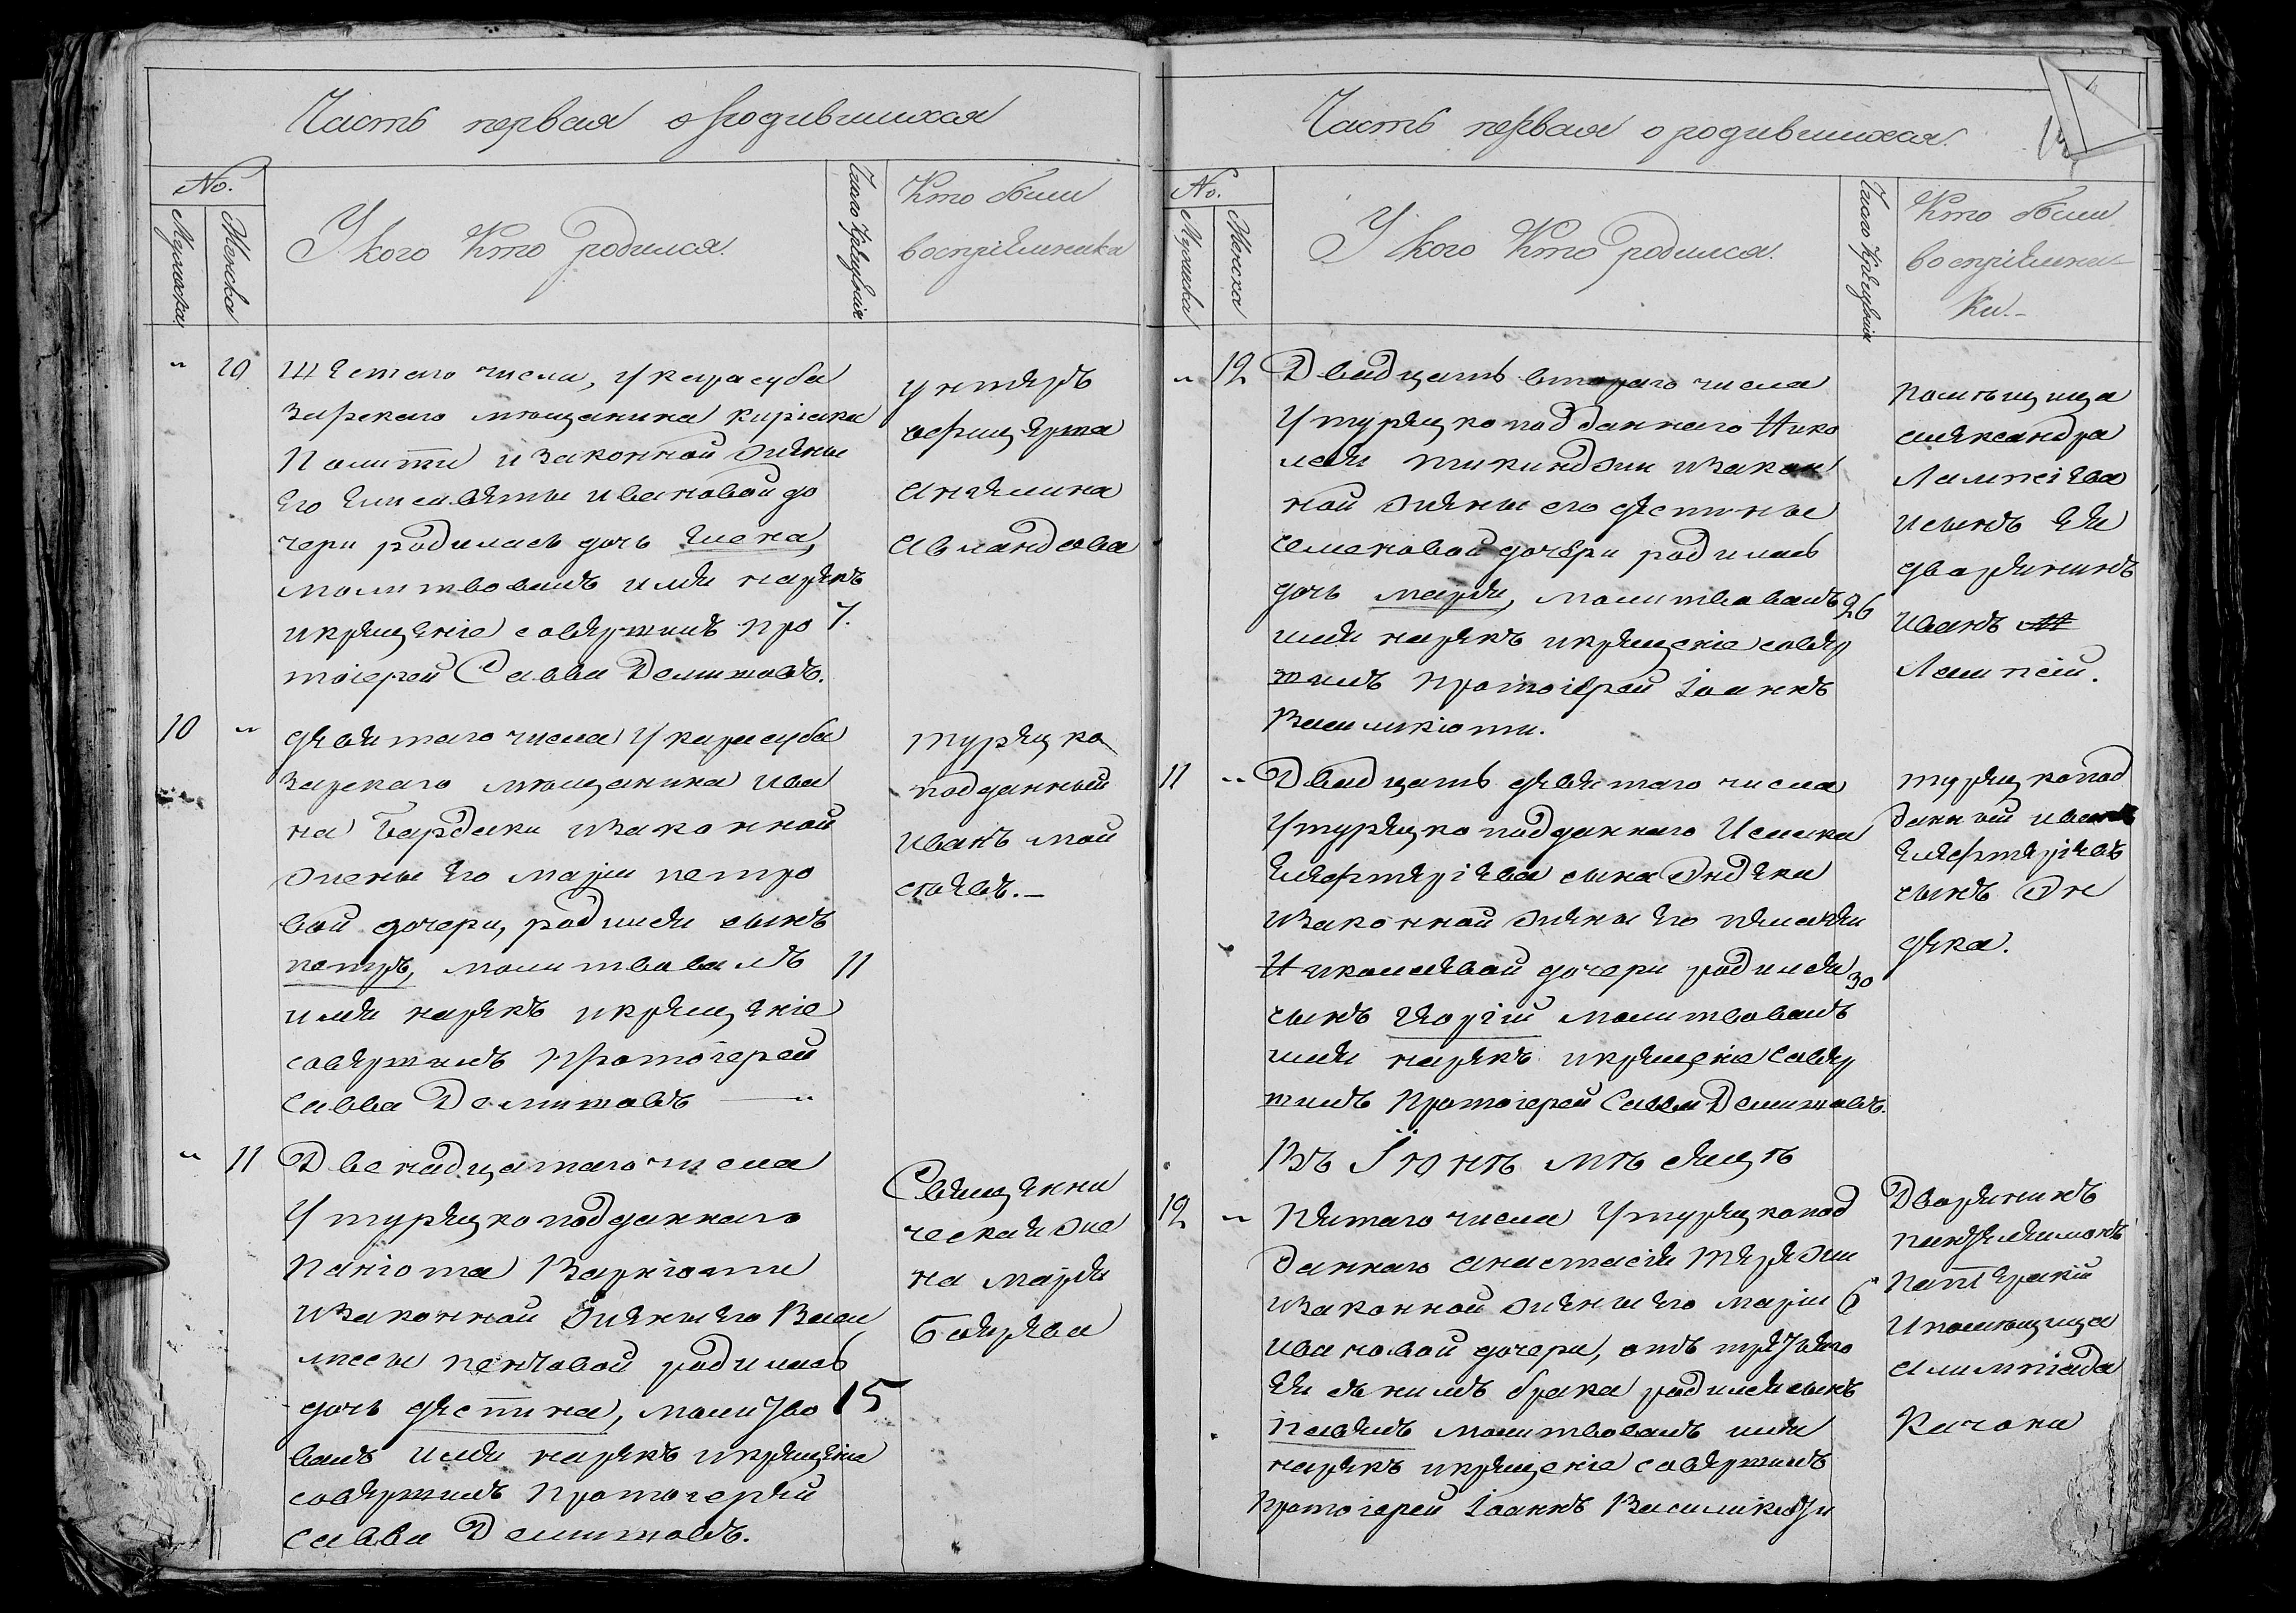 Часть первая о родившихся
No.
Мужска
Женска
У кого Кто родился.
Число Крещенія
Кто были
воспріемника
" 10
Шестаго числа, у карасуба
зарскаго мѣщанина Киріака
Политти и законной жены
его Елисаветы Ивановой до
чери родилась дочь Елена,
молитвовалъ имя нарекъ
и крещеніе совершилъ Про
тоіерей Савва
7.
унтеръ
офицерша
Ангелина
10 "
девятаго числа у карасуба
зарскаго мѣщанина Ива
на Бардаки и законной
жены его Маріи Петро
вой дочери, родился сынъ
Петръ, молитвовалъ
имя нарекъ и крещеніе
совершилъ Протоіерей
Савва
11
турецко
подданный
Иванъ Мой
сеевъ.-
" 11
Двенадцатаго числа
у турецкоподданнаго
Паніота
и законной жены его Васи
лисы родилась
дочь Деспина, молитво
валъ имя нарекъ и крещеніе
совершилъ Протоіерей
Савва
15
Священни
ческая же
на Марія
Часть первая о родившихся.
No.
Мужска
Женска
У кого Кто родился.
Число Крещенія
Кто были
воспріемни-
ки.-
" 12
Двадцать втораго числа
у турецкоподданнаго Нико
лая и закон
ной жены его Деспины
Семеновой дочери родилась
дочь Марія, молитвовалъ
имя нарекъ и крещеніе совер
шилъ Протоіерей Іоаннъ
Василикіоти.
26
помѣщица
Александра
и сынъ ея
дворянинъ
Иванъ
11 "
Двадцать девятаго числа
у турецкоподданнаго Исаака
Елефтеріева сына
и законной жены его Пелагіи
Николаевой дочери родился
сынъ Георгій молитвовалъ
имя нарекъ и крещеніе совер
шилъ Протоіерей Савва
30
турецкопод
данный Иванъ
Елефтеріевъ
сынъ
Въ Іюнѣ мѣсяцѣ
12 "
Пятаго числа у турецкопод
даннаго Анастасія
и законной жены его Маріи
Ивановой дочери, отъ третьяго
ея съ нимъ брака родился сынъ
Павелъ молитвовалъ имя
нарекъ и крещеніе совершилъ
Протоіерей Іоаннъ Василикіоти
6
Дворянинъ
Пантелеимонъ
и помѣщица
Качони